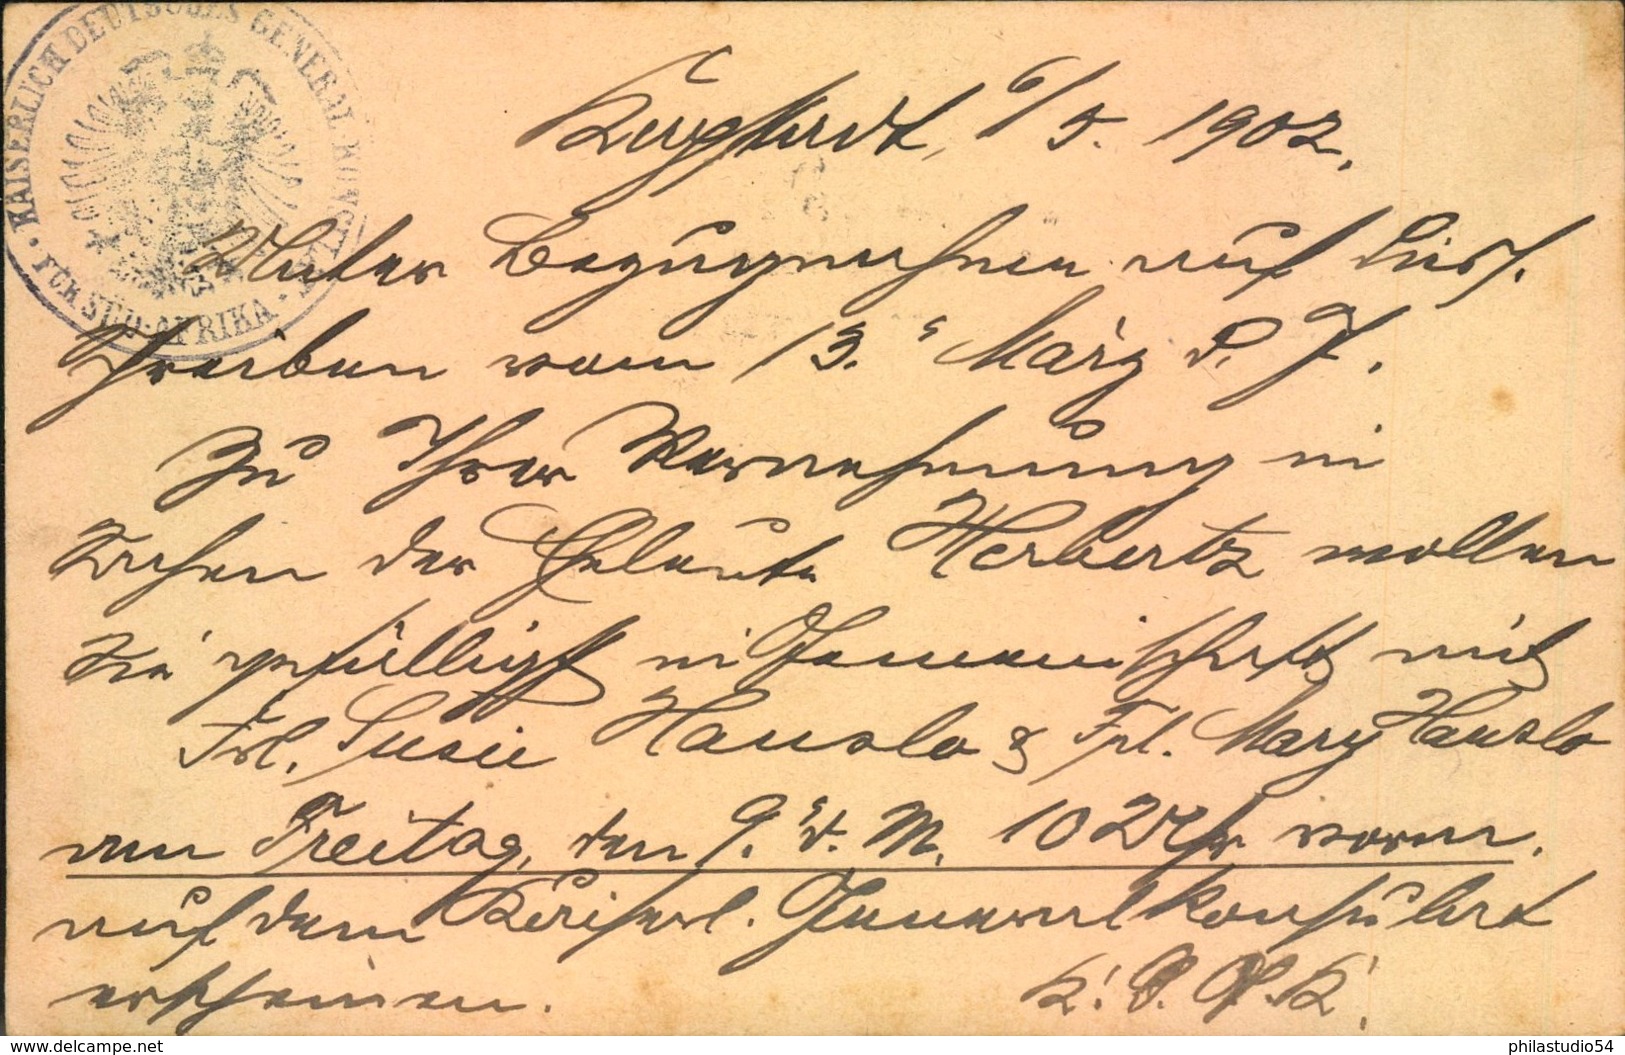 KAISERLICH DEUTSCHES GENERAL-KONSULAT
FÜR SÜD-AFRIKA
Kapstadt, 6/5. 1902.
Unter Bezugnahme auf Ihr
Schreiben vom 13. März d. J.
Zu Ihrer Vernehmung in
Sachen der Eheleute Herbertz wollen
Sie gefälligst in Gemeinschaft mit
Frl. Susie Hauslo & Frl. Mary Hauslo
am Freitag, den 9. d. M. 10 Uhr vorm.
auf dem Kaiserl. Generalkonsulat
erscheinen. K. D. G. K.
www.delcampe.net
philastudio54